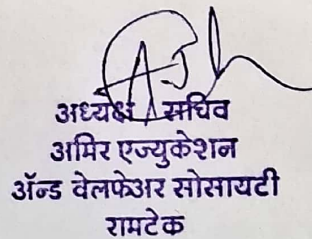 अध्यक्ष / सचिव
अमिर एज्युकेशन
ॲन्ड वेलफेअर सोसायटी
रामटेक